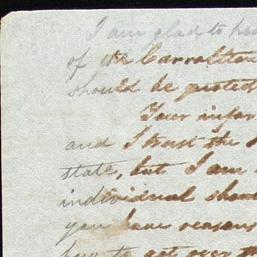 I am glad to hea
of the Carrollton
should be protec
Your infor
and I trust the
state, but I am
individual shou
you have reasons
to get over th